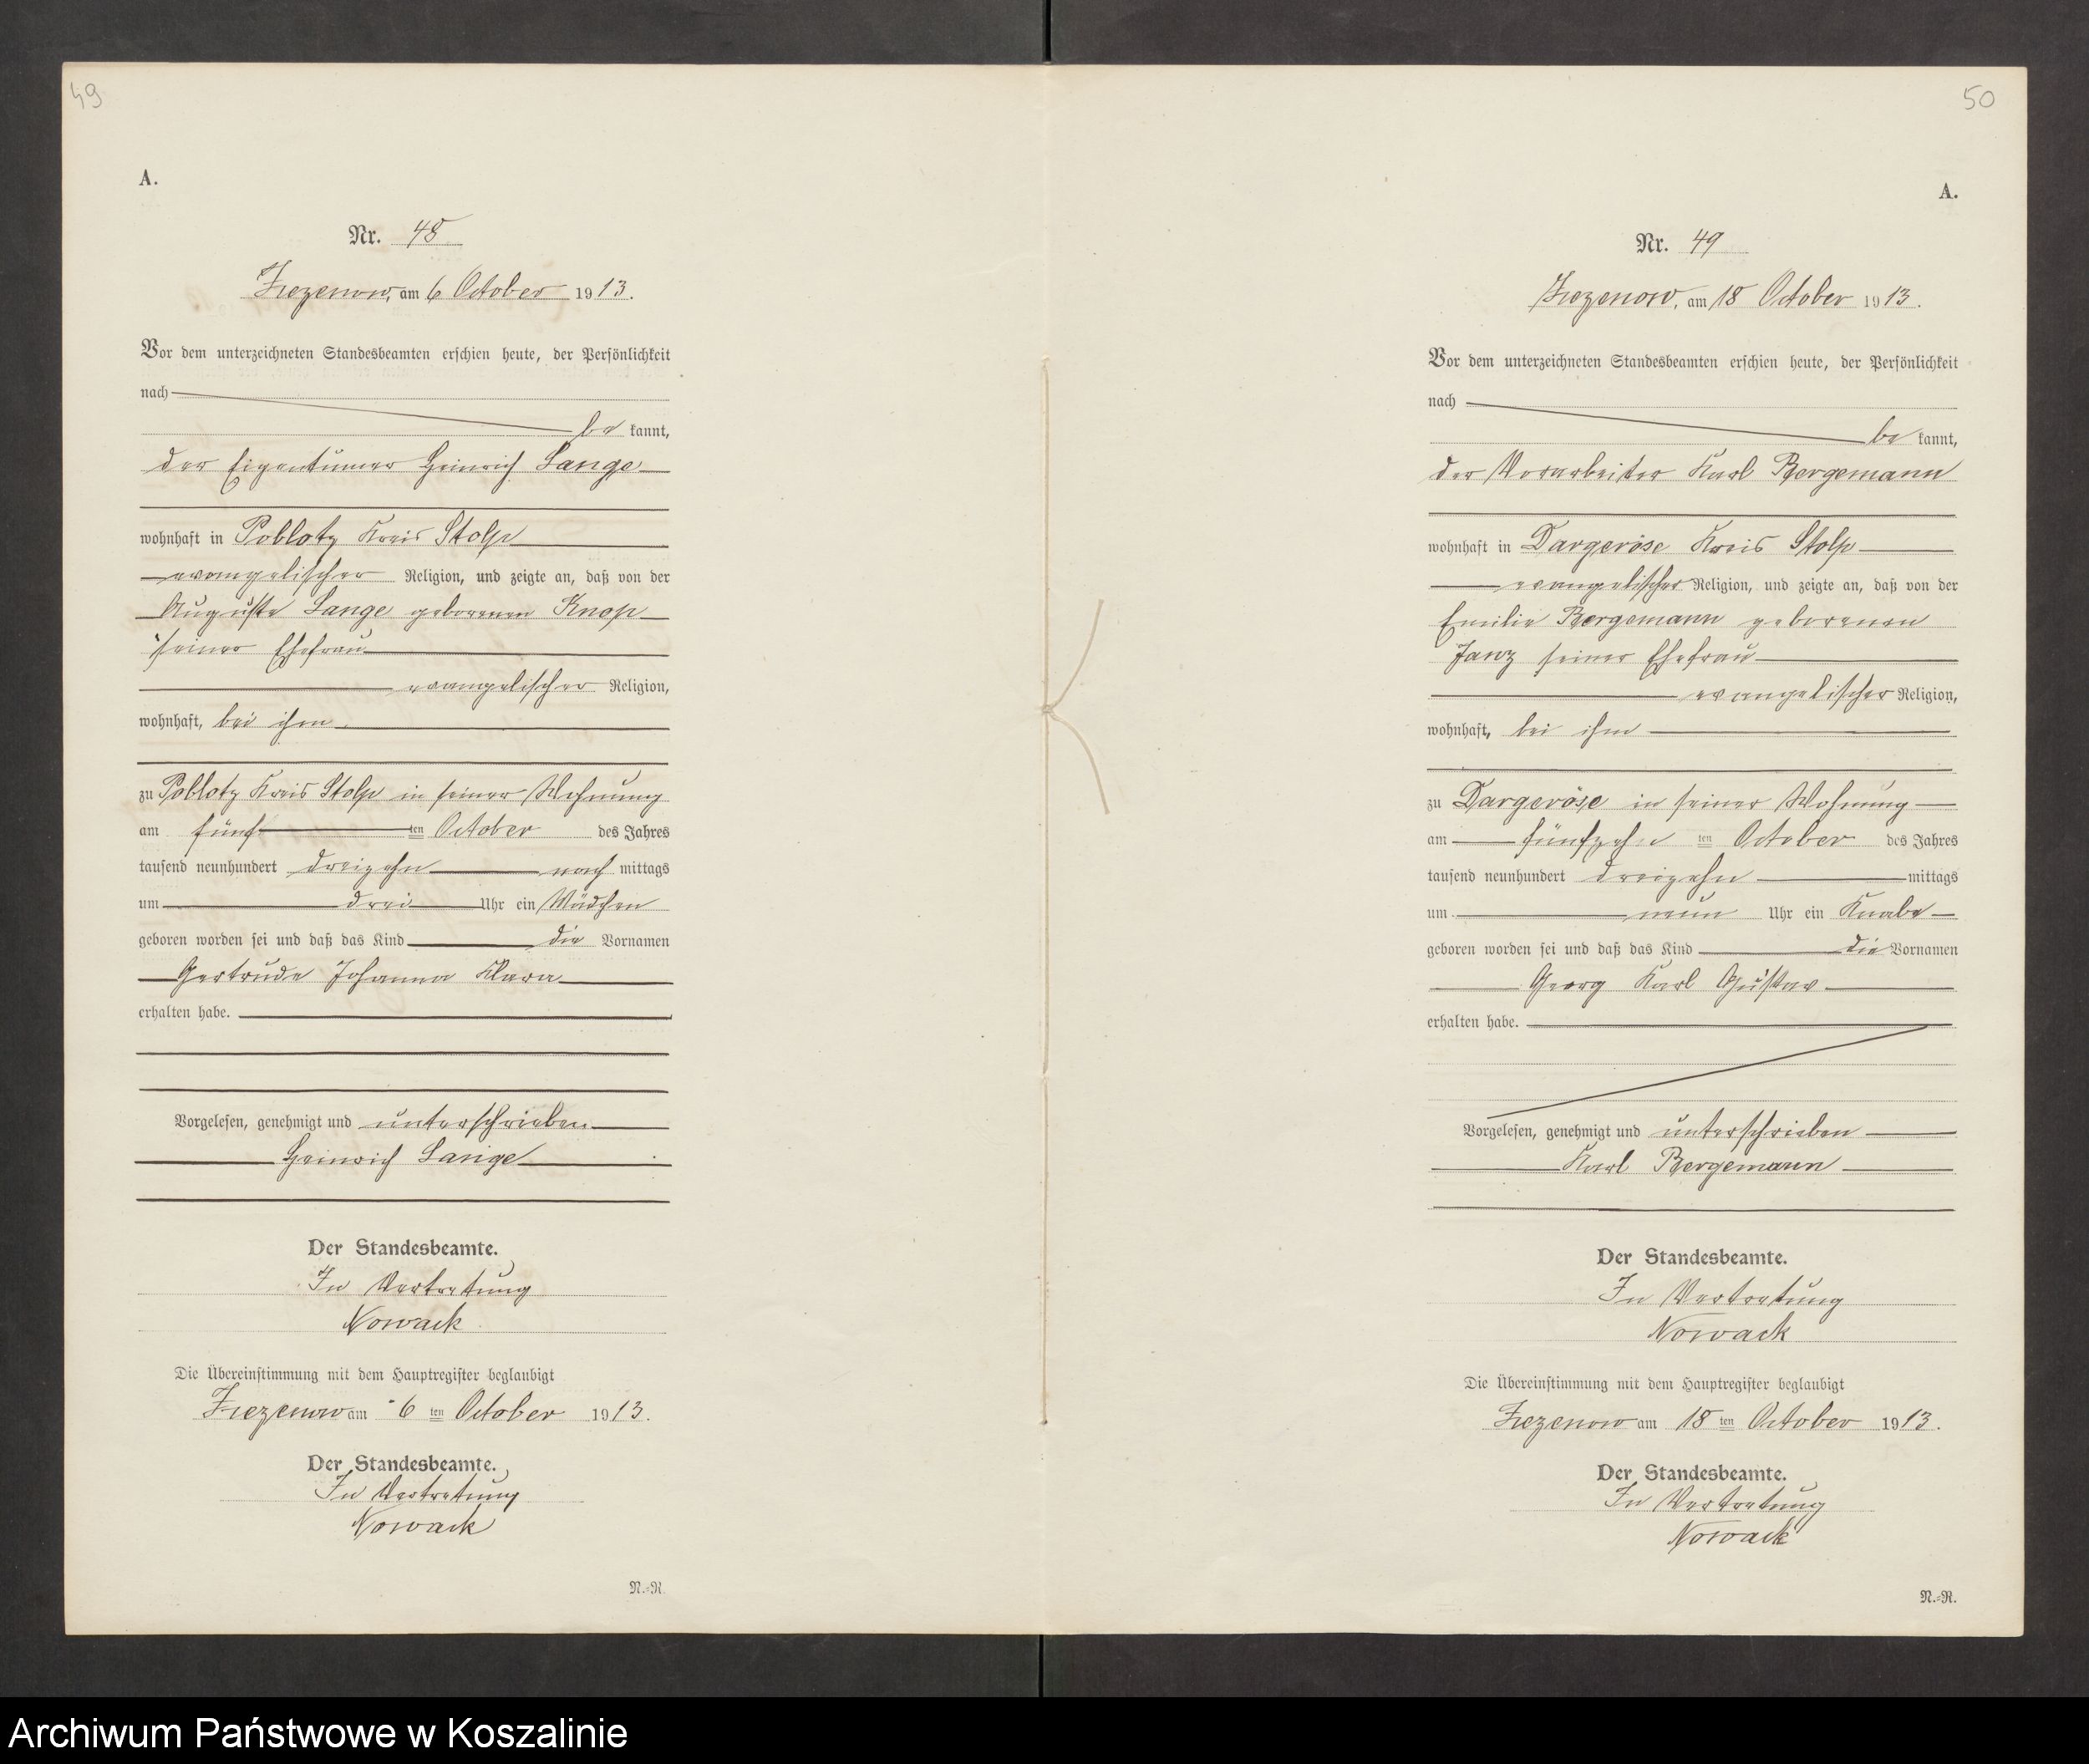 49
A.
Nr. 48
Zezenow, am 6 October 1913.
Vor dem unterzeichneten Standesbeamten erschien heute, der Persönlichkeit
nach
be kannt,
der Eigentümer Heinrich Lange
wohnhaft in Poblotz Kreis Stolp
evangelischer Religion, und zeigte an, daß von der
Auguste Lange geborenen Knop
seiner Ehefrau
evangelischer Religion,
wohnhaft, bei ihm
zu Poblotz Kreis Stolp in seiner Wohnung
am fünf ten October des Jahres
tausend neunhundert dreizehn nach mittags
um drei Uhr ein Mädchen
geboren worden sei und daß das Kind die Vornamen
Gertrude Johanna Klara
erhalten habe.
Vorgelesen, genehmigt und unterschrieben
Heinrich Lange
Der Standesbeamte.
In Vertretung
Nowack
Die Übereinstimmung mit dem Hauptregister beglaubigt
Zezenow am 6 ten October 1913.
Der Standesbeamte.
In Vertretung
Nowack
N.-R.
50
A.
Nr. 49
Zezenow, am 18 October 1913.
Vor dem unterzeichneten Standesbeamten erschien heute, der Persönlichkeit
nach
be kannt,
der Vorarbeiter Karl Bergemann
wohnhaft in Dargeröse Kreis Stolp
evangelischer Religion, und zeigte an, daß von der
Emilie Bergemann geborenen
Janz seiner Ehefrau
evangelischer Religion,
wohnhaft, bei ihm
zu Dargeröse in seiner Wohnung
am fünfzehn ten October des Jahres
tausend neunhundert dreizehn mittags
um neun Uhr ein Knabe
geboren worden sei und daß das Kind die Vornamen
Georg Karl Gustav
erhalten habe.
Vorgelesen, genehmigt und unterschrieben
Karl Bergemann
Der Standesbeamte.
In Vertretung
Nowack
Die Übereinstimmung mit dem Hauptregister beglaubigt
Zezenow am 18 ten October 1913.
Der Standesbeamte.
In Vertretung
Nowack
N.-R.
Archiwum Państwowe w Koszalinie